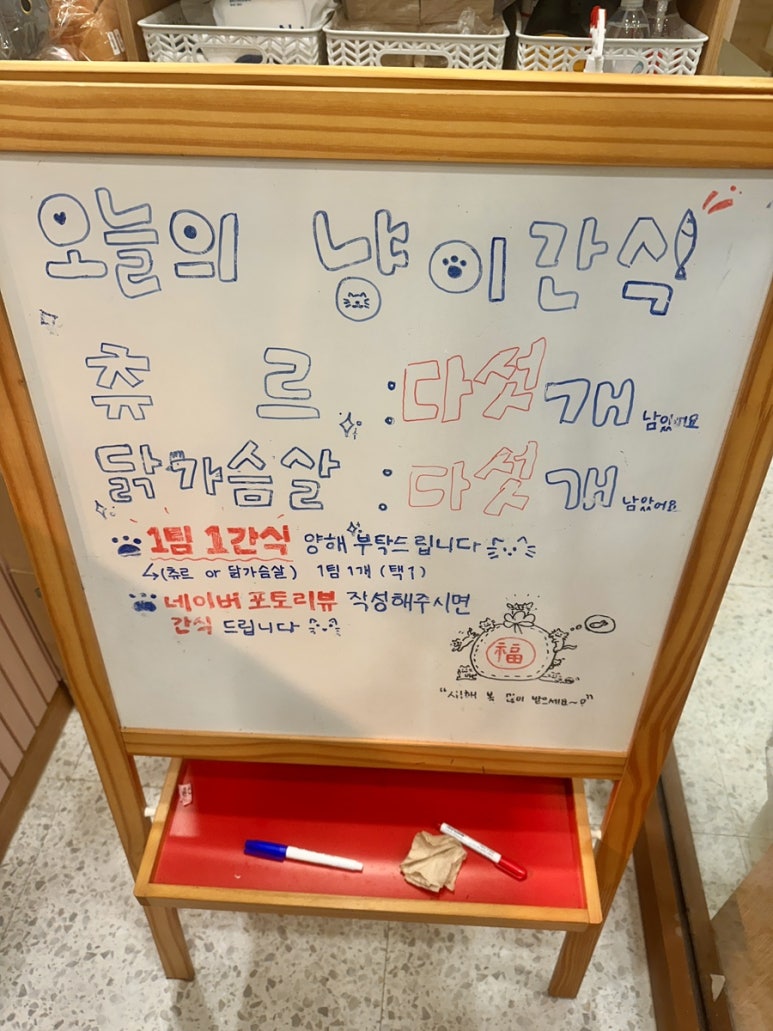 오늘의 냥이간식
츄르 : 다섯개 남았어요
닭가슴살 : 다섯개 남았어요
1팀 1간식 양해 부탁드립니다
↳(츄르 or 닭가슴살) 1팀 1개 (택1)
네이버 포토리뷰 작성해주시면
간식 드립니다
福
"새해 복 많이 받으세요~♡"